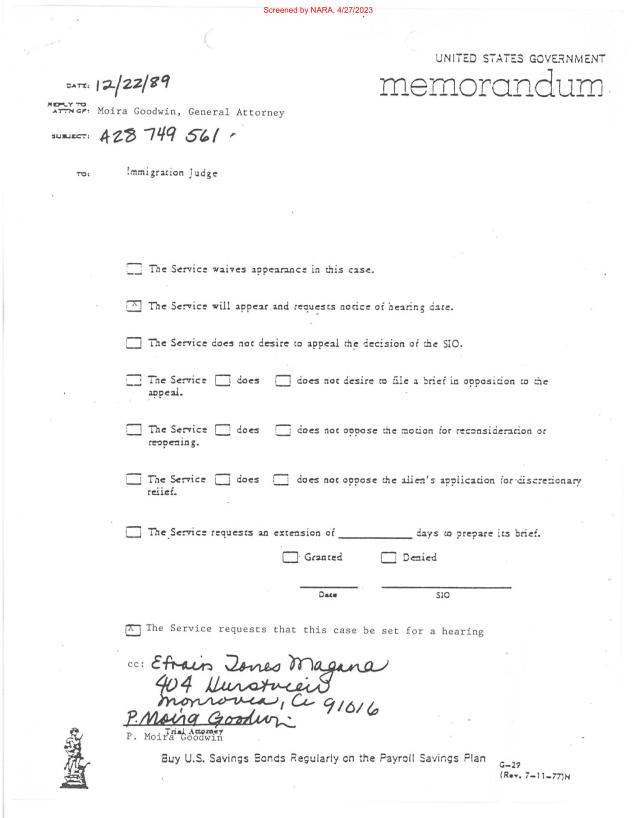 Screened by NARA, 4/27/2023
UNITED STATES GOVERNMENT
memorandum
DATE: 12/22/89
REPLY TO
ATTN OF: Moira Goodwin, General Attorney
SUBJECT: A28 749 561
TO: Immigration Judge
The Service waives appearance in this case.
X The Service will appear and requests notice of hearing date.
The Service does not desire to appeal the decision of the SIO.
The Service does does not desire to file a brief in opposition to the
appeal.
The Service does does not oppose the motion for reconsideration or
reopening.
The Service does does not oppose the alien's application for discretionary
relief.
The Service requests an extension of ____________ days to prepare its brief.
Granted Denied
Date SIO
X The Service requests that this case be set for a hearing
cc: Efrain Magana
404
Monrovia, Ca 91016
P. Moira Goodwin
Trial Attorney
P. Moira Goodwin
Buy U.S. Savings Bonds Regularly on the Payroll Savings Plan
G-29
(Rev. 7-11-77)N